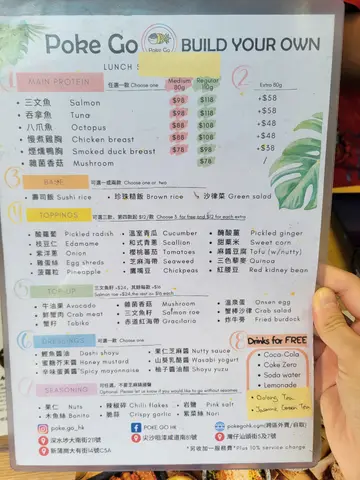 Poke Go
Poke Go
BUILD YOUR OWN
LUNCH S
1 MAIN PROTEIN 任選一款 Choose one Medium 80g Regular 110g
2 Extra 80g
三文魚 Salmon $98 $118 +$58
吞拿魚 Tuna $98 $118 +$58
八爪魚 Octopus $88 $108 +$48
慢煮雞胸 Chicken breast $88 $108 +$48
煙燻鴨胸 Smoked duck breast $78 $98 +$38
雜菌香菇 Mushroom $78 /
3 BASE 可選一或兩款 Choose one or two
壽司飯 Sushi rice
珍珠糙飯 Brown rice
沙律菜 Green salad
4 TOPPINGS Choose 5 for free and $12 for each extra
酸蘿蔔 Pickled radish
溫室青瓜 Cucumber
酸薑 Pickled ginger
枝豆仁 Edamame
和式青蔥 Scallion
甜粟米 Sweet corn
紫洋蔥 Onion
櫻桃蕃茄 Tomatoes
麻醬豆腐 Tofu (w/nutty)
雞蛋絲 Egg shreds
芝麻海帶 Seaweed
三色藜麥 Quinoa
菠蘿粒 Pineapple
鷹嘴豆 Chickpeas
紅腰豆 Red kidney bean
5 TOP-UP
牛油果 Avocado
雜菌香菇 Mushroom
溫泉蛋 Onsen egg
鮮蟹肉 Crab meat
三文魚籽 Salmon roe
蟹棒沙律 Crab salad
蟹籽 Tobiko
赤道紅海藻 Gracilaria
炸牛蒡 Fried burdock
DRESSINGS 可選一款 Choose one
鰹魚醬油 Dashi shoyu
果仁芝麻醬 Nutty sauce
蜜糖芥末醬 Honey mustard
山葵乳酪醬 Wasabi yogurt
辛味蛋黃醬 Spicy mayonnaise
柚子醬油醋 Shoyu yuzu
8 Drinks for FREE
Coca-Cola
Coke Zero
Soda water
Lemonade
Oolong Tea
Jasmine Green Tea
SEASONING
Optional. Please let us know if you would like to go without seasoning.
果仁 Nuts
辣椒碎 Chili flakes
岩鹽 Pink salt
木魚絲 Bonito
脆蒜 Crispy garlic
紫菜絲 Nori
poke_go_hk
POKE GO HK
深水埗大南街211號
尖沙咀漆咸道南60號
*另收加一服務費*Plus 10% service charge